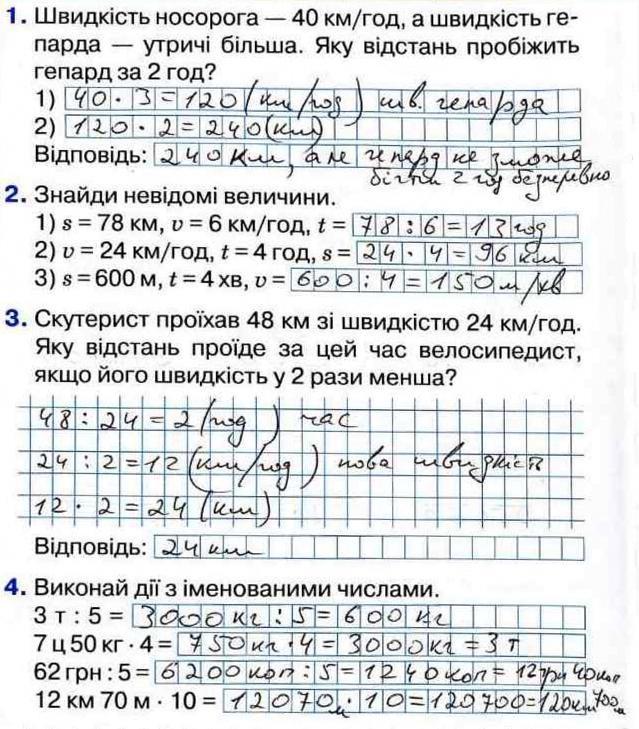 1. Швидкість носорога — 40 км/год, а швидкість ге-
парда — утричі більша. Яку відстань пробіжить
гепард за 2 год?
1) 40 · 3 = 120 (км/год) шв. гепарда
2) 120 · 2 = 240 (км)
Відповідь: 240 км, але гепард не зможе
бігти 2 год безперевно
2. Знайди невідомі величини.
1) s = 78 км, v = 6 км/год, t = 78 : 6 = 13 год
2) v = 24 км/год, t = 4 год, s = 24 · 4 = 96 км
3) s = 600 м, t = 4 хв, v = 600 : 4 = 150 м/хв
3. Скутерист проїхав 48 км зі швидкістю 24 км/год.
Яку відстань проїде за цей час велосипедист,
якщо його швидкість у 2 рази менша?
48 : 24 = 2 (год) час
24 : 2 = 12 (км/год) нова швидкість
12 · 2 = 24 (км)
Відповідь: 24 км
4. Виконай дії з іменованими числами.
3 т : 5 = 3000 кг : 5 = 600 кг
7 ц 50 кг · 4 = 750 кг · 4 = 3000 кг = 3 т
62 грн : 5 = 6200 коп : 5 = 1240 коп = 12 грн 40 коп
12 км 70 м · 10 = 12070 м · 10 = 120700 = 120 км 700 м